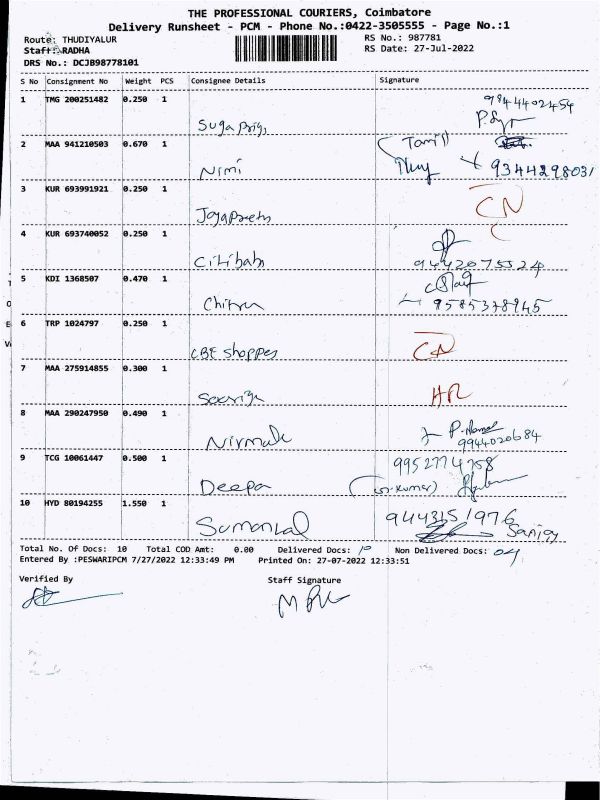 THE PROFESSIONAL COURIERS, Coimbatore
Delivery Runsheet - PCM - Phone No.:0422-3505555 - Page No.:1
Route: THUDIYALUR RS No.: 987781
Staff: RADHA RS Date: 27-Jul-2022
DRS No.: DCJB98778101
S No Consignment No Weight PCS Consignee Details Signature
1 TMG 200251482 0.250 1
9944402454
Suga priya
2 MAA 941210503 0.670 1 Tamil
Nimi 9344298031
3 KUR 693991921 0.250 1 CN
4 KUR 693740052 0.250 1
Citibabs 9442075524
5 KDI 1368507 0.470 1
Chitra 9585378945
6 TRP 1024797 0.250 1
CBE shoppes CN
7 MAA 275914855 0.300 1
HR
8 MAA 290247950 0.490 1
Nirmala 9944020684
9 TCG 10061447 0.500 1 9952774758
Deepa
10 HYD 80194255 1.550 1 9443151976
Sumanlal Sanjay
Total No. Of Docs: 10 Total COD Amt: 0.00 Delivered Docs: 10 Non Delivered Docs: 04
Entered By :PESWARIPCM 7/27/2022 12:33:49 PM Printed On: 27-07-2022 12:33:51
Verified By Staff Signature